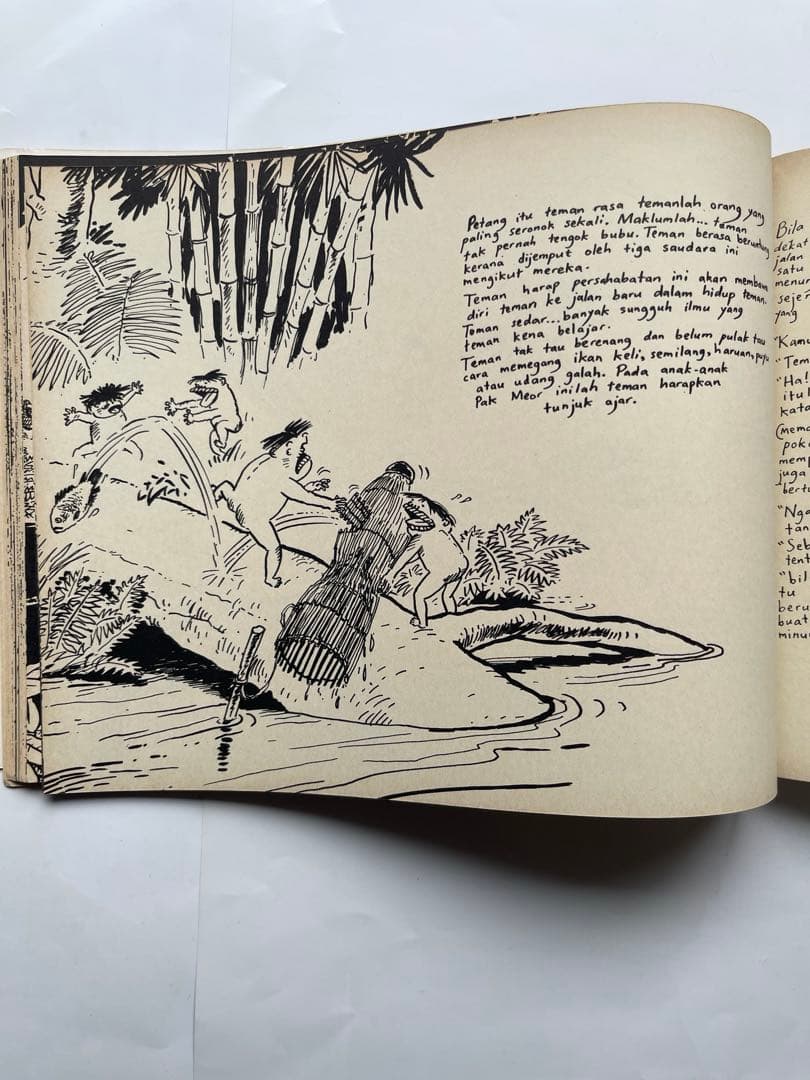 Petang itu teman rasa temanlah orang yang
paling seronok sekali. Maklumlah... teman
tak pernah tengok bubu. Teman berasa beruntung
kerana dijemput oleh tiga saudara ini
mengikut mereka.
Teman harap persahabatan ini akan membawa
diri teman ke jalan baru dalam hidup teman.
Teman sedar... banyak sungguh ilmu yang
teman kena belajar.
Teman tak tau berenang dan belum pulak tau
cara memegang ikan keli, semilang, haruan, puyu
atau udang galah. Pada anak-anak
Pak Meor inilah teman harapkan
tunjuk ajar.
Bila
dekat
jalan
satu
menur
seje
yang
"Kamu
"Tem
"Ha!
itul
kata
(mema
poko
memp
juga
bert
"Nga
tan
"Seb
tent
"bil
tu
beru
buat
minu